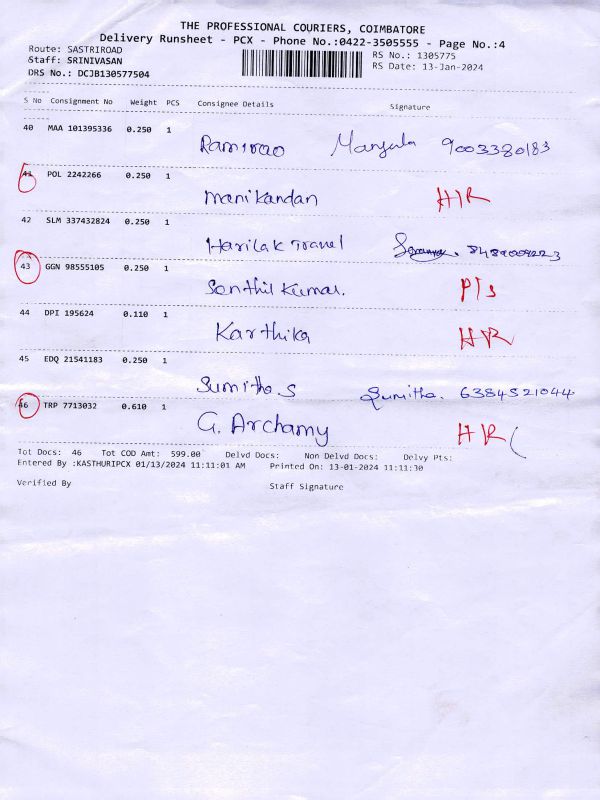 THE PROFESSIONAL COURIERS, COIMBATORE
Delivery Runsheet - PCX - Phone No.:0422-3505555 - Page No.:4
Route: SASTRIROAD RS No.: 1305775
Staff: SRINIVASAN RS Date: 13-Jan-2024
DRS No.: DCJB130577504
S No Consignment No Weight PCS Consignee Details Signature
40 MAA 101395336 0.250 1
Ramrao Manjula 9003380183
41 POL 2242266 0.250 1
manikandan H/R
42 SLM 337432824 0.250 1
Harilak Travel
43 GGN 98555105 0.250 1
Senthil Kumar.
44 DPI 195624 0.110 1
Karthika
45 EDQ 21541183 0.250 1
Sumitha S Sumitha. 6384521044
46 TRP 7713032 0.610 1
G. Archamy HR
Tot Docs: 46 Tot COD Amt: 599.00 Delvd Docs: Non Delvd Docs: Delvy Pts:
Entered By :KASTHURIPCX 01/13/2024 11:11:01 AM Printed On: 13-01-2024 11:11:30
Verified By Staff Signature